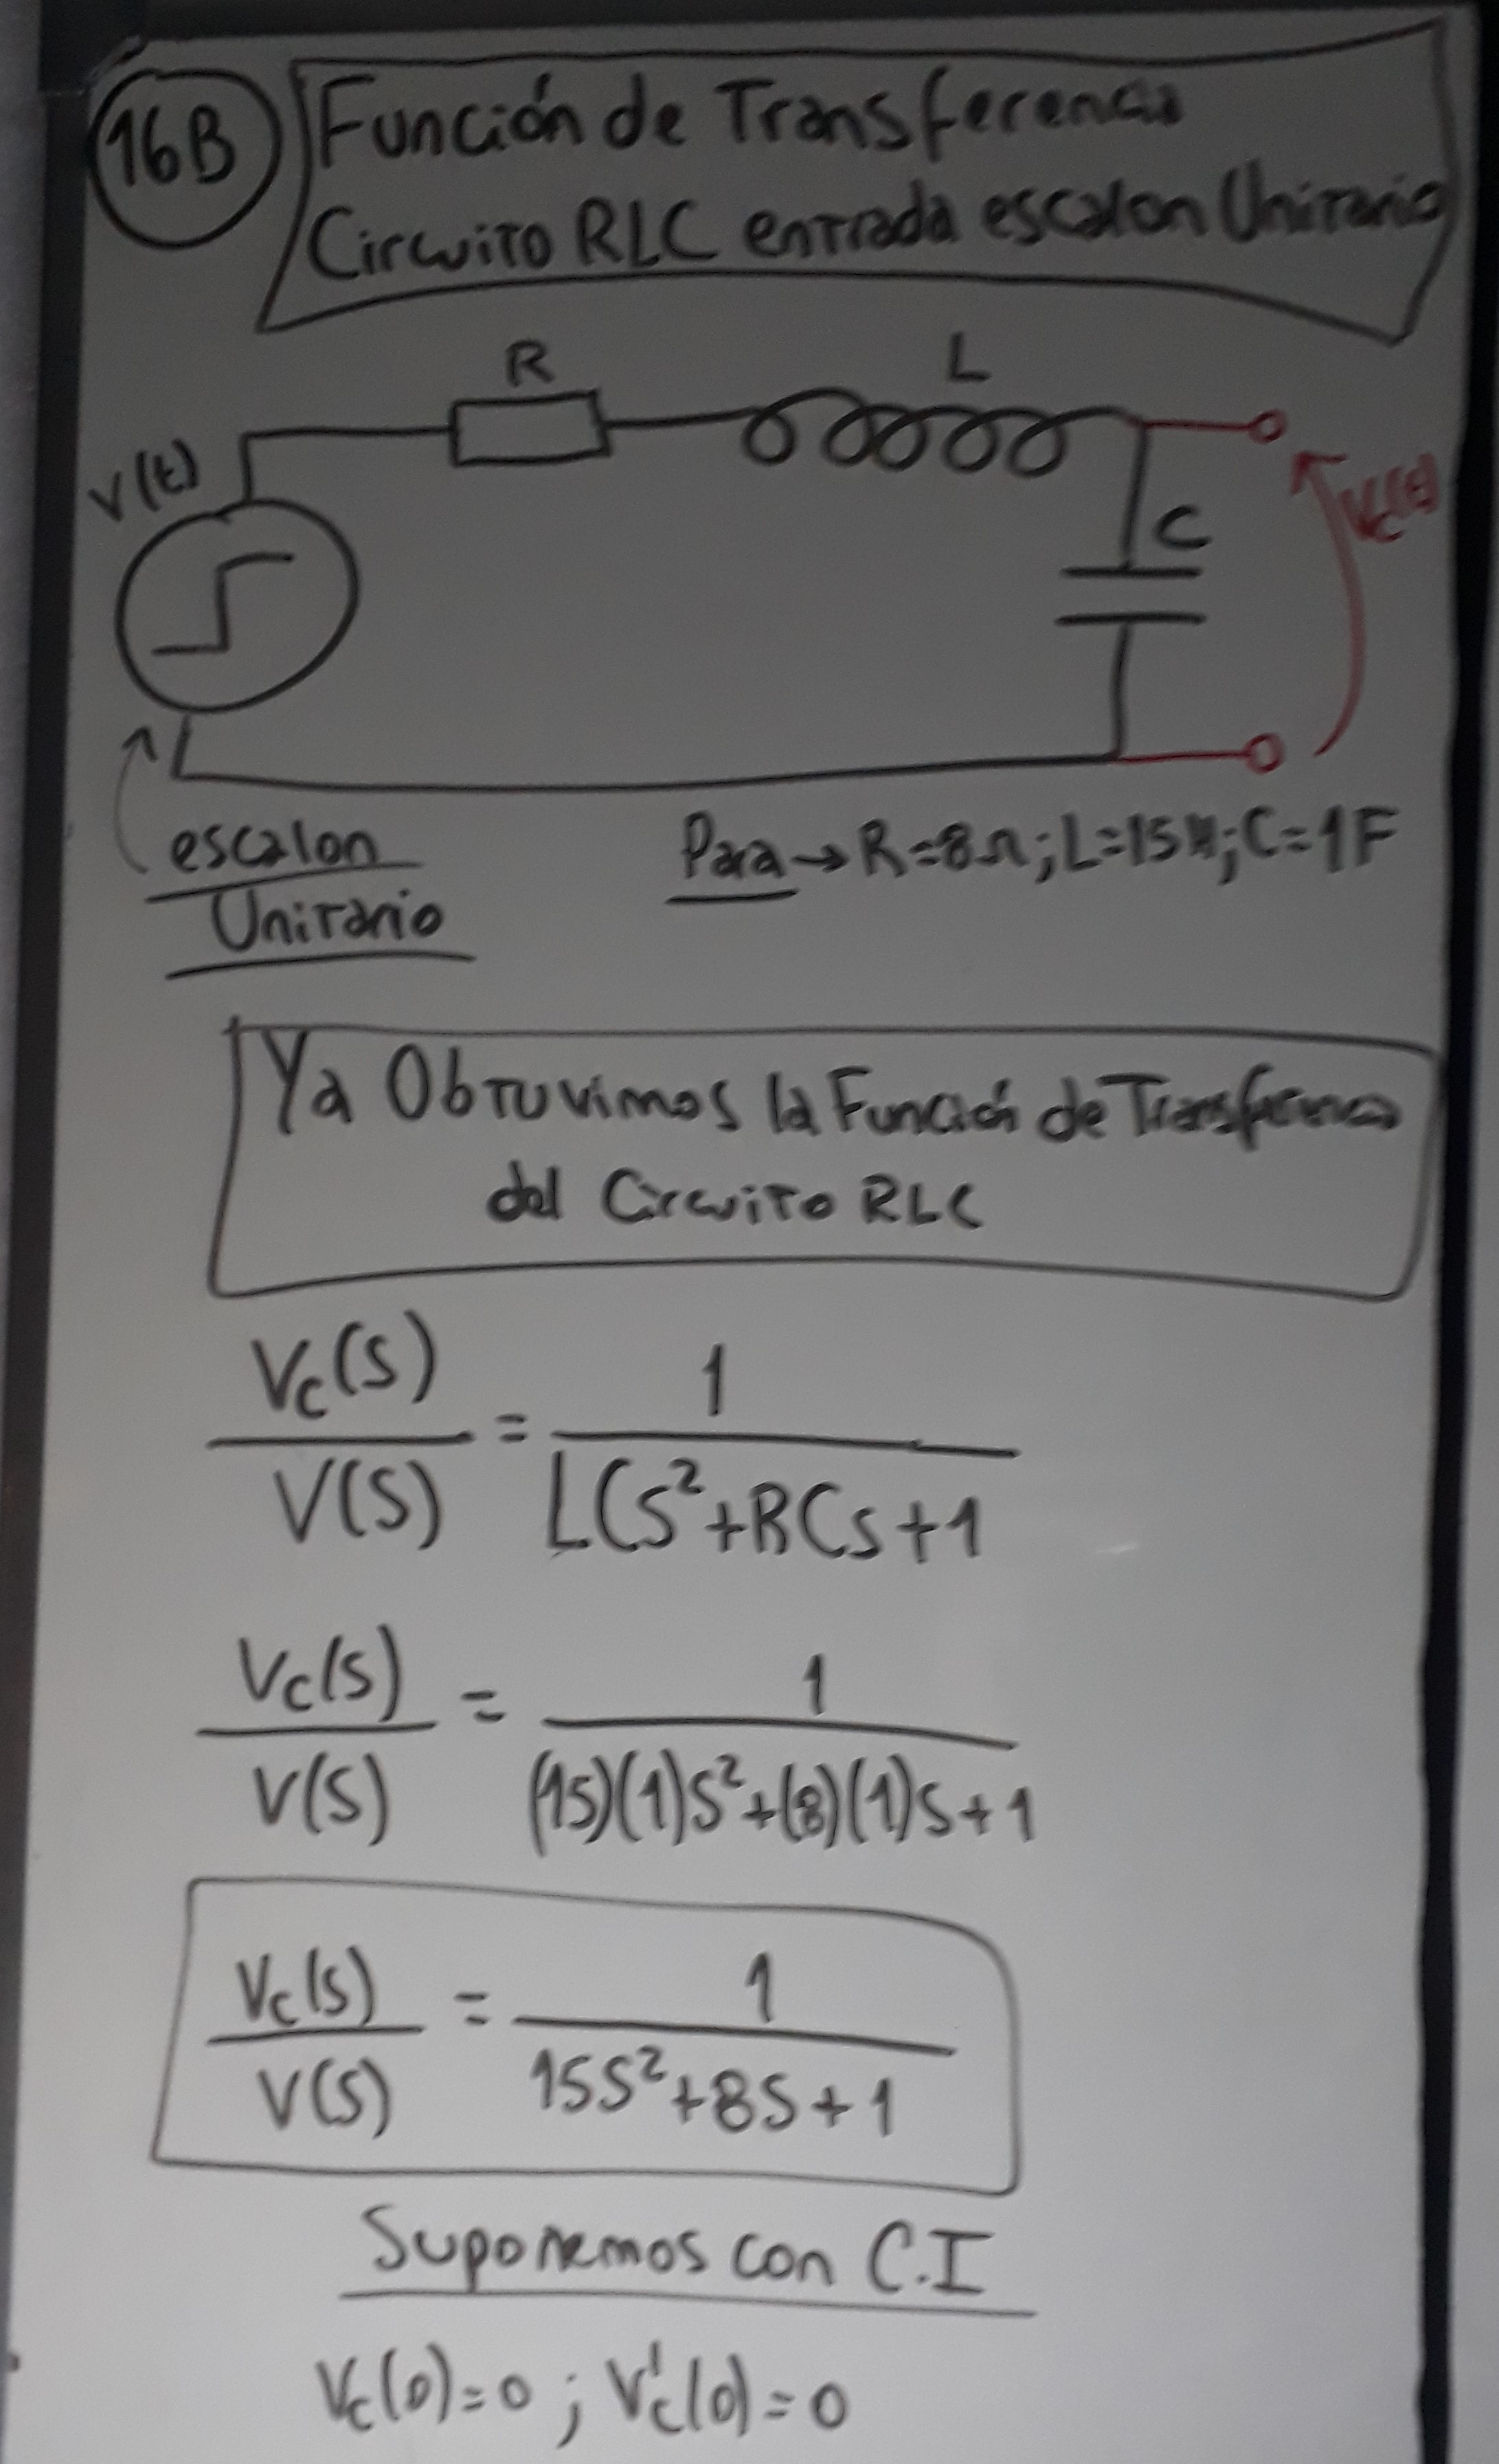 16B
Función de Transferencia
Circuito RLC entrada escalon Unitario
R
L
V(t)
C
Vc(t)
escalon
Unitario
Para → R=8Ω; L=15H; C=1F
Ya Obtuvimos la Función de Transferencia
del Circuito RLC
Vc(s)/V(s) = 1/(LCs²+RCs+1)
Vc(s)/V(s) = 1/((15)(1)s²+(8)(1)s+1)
Vc(s)/V(s) = 1/(15s²+8s+1)
Suponemos con C.I
Vc(0)=0 ; V'c(0)=0